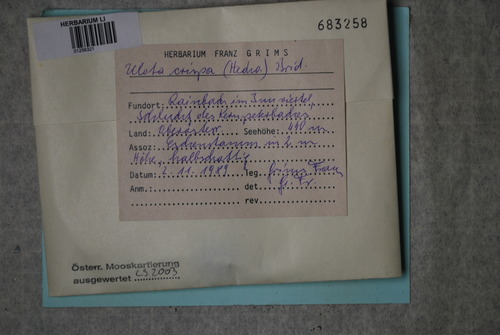 HERBARIUM LI
683258
HERBARIUM FRANZ GRIMS
Ulota crispa (Hedw.) Brid.
Fundort: Rainbach im Innviertel,
Land: Oberösterr. Seehöhe: 410 m
Assoz: Erdenstamm in 2 m
Höhe, halbschattig
Datum: 2.11.1989 leg. Grims Franz
Anm.: det. Gr. Fr.
rev.
Österr. Mooskartierung
ausgewertet 2003